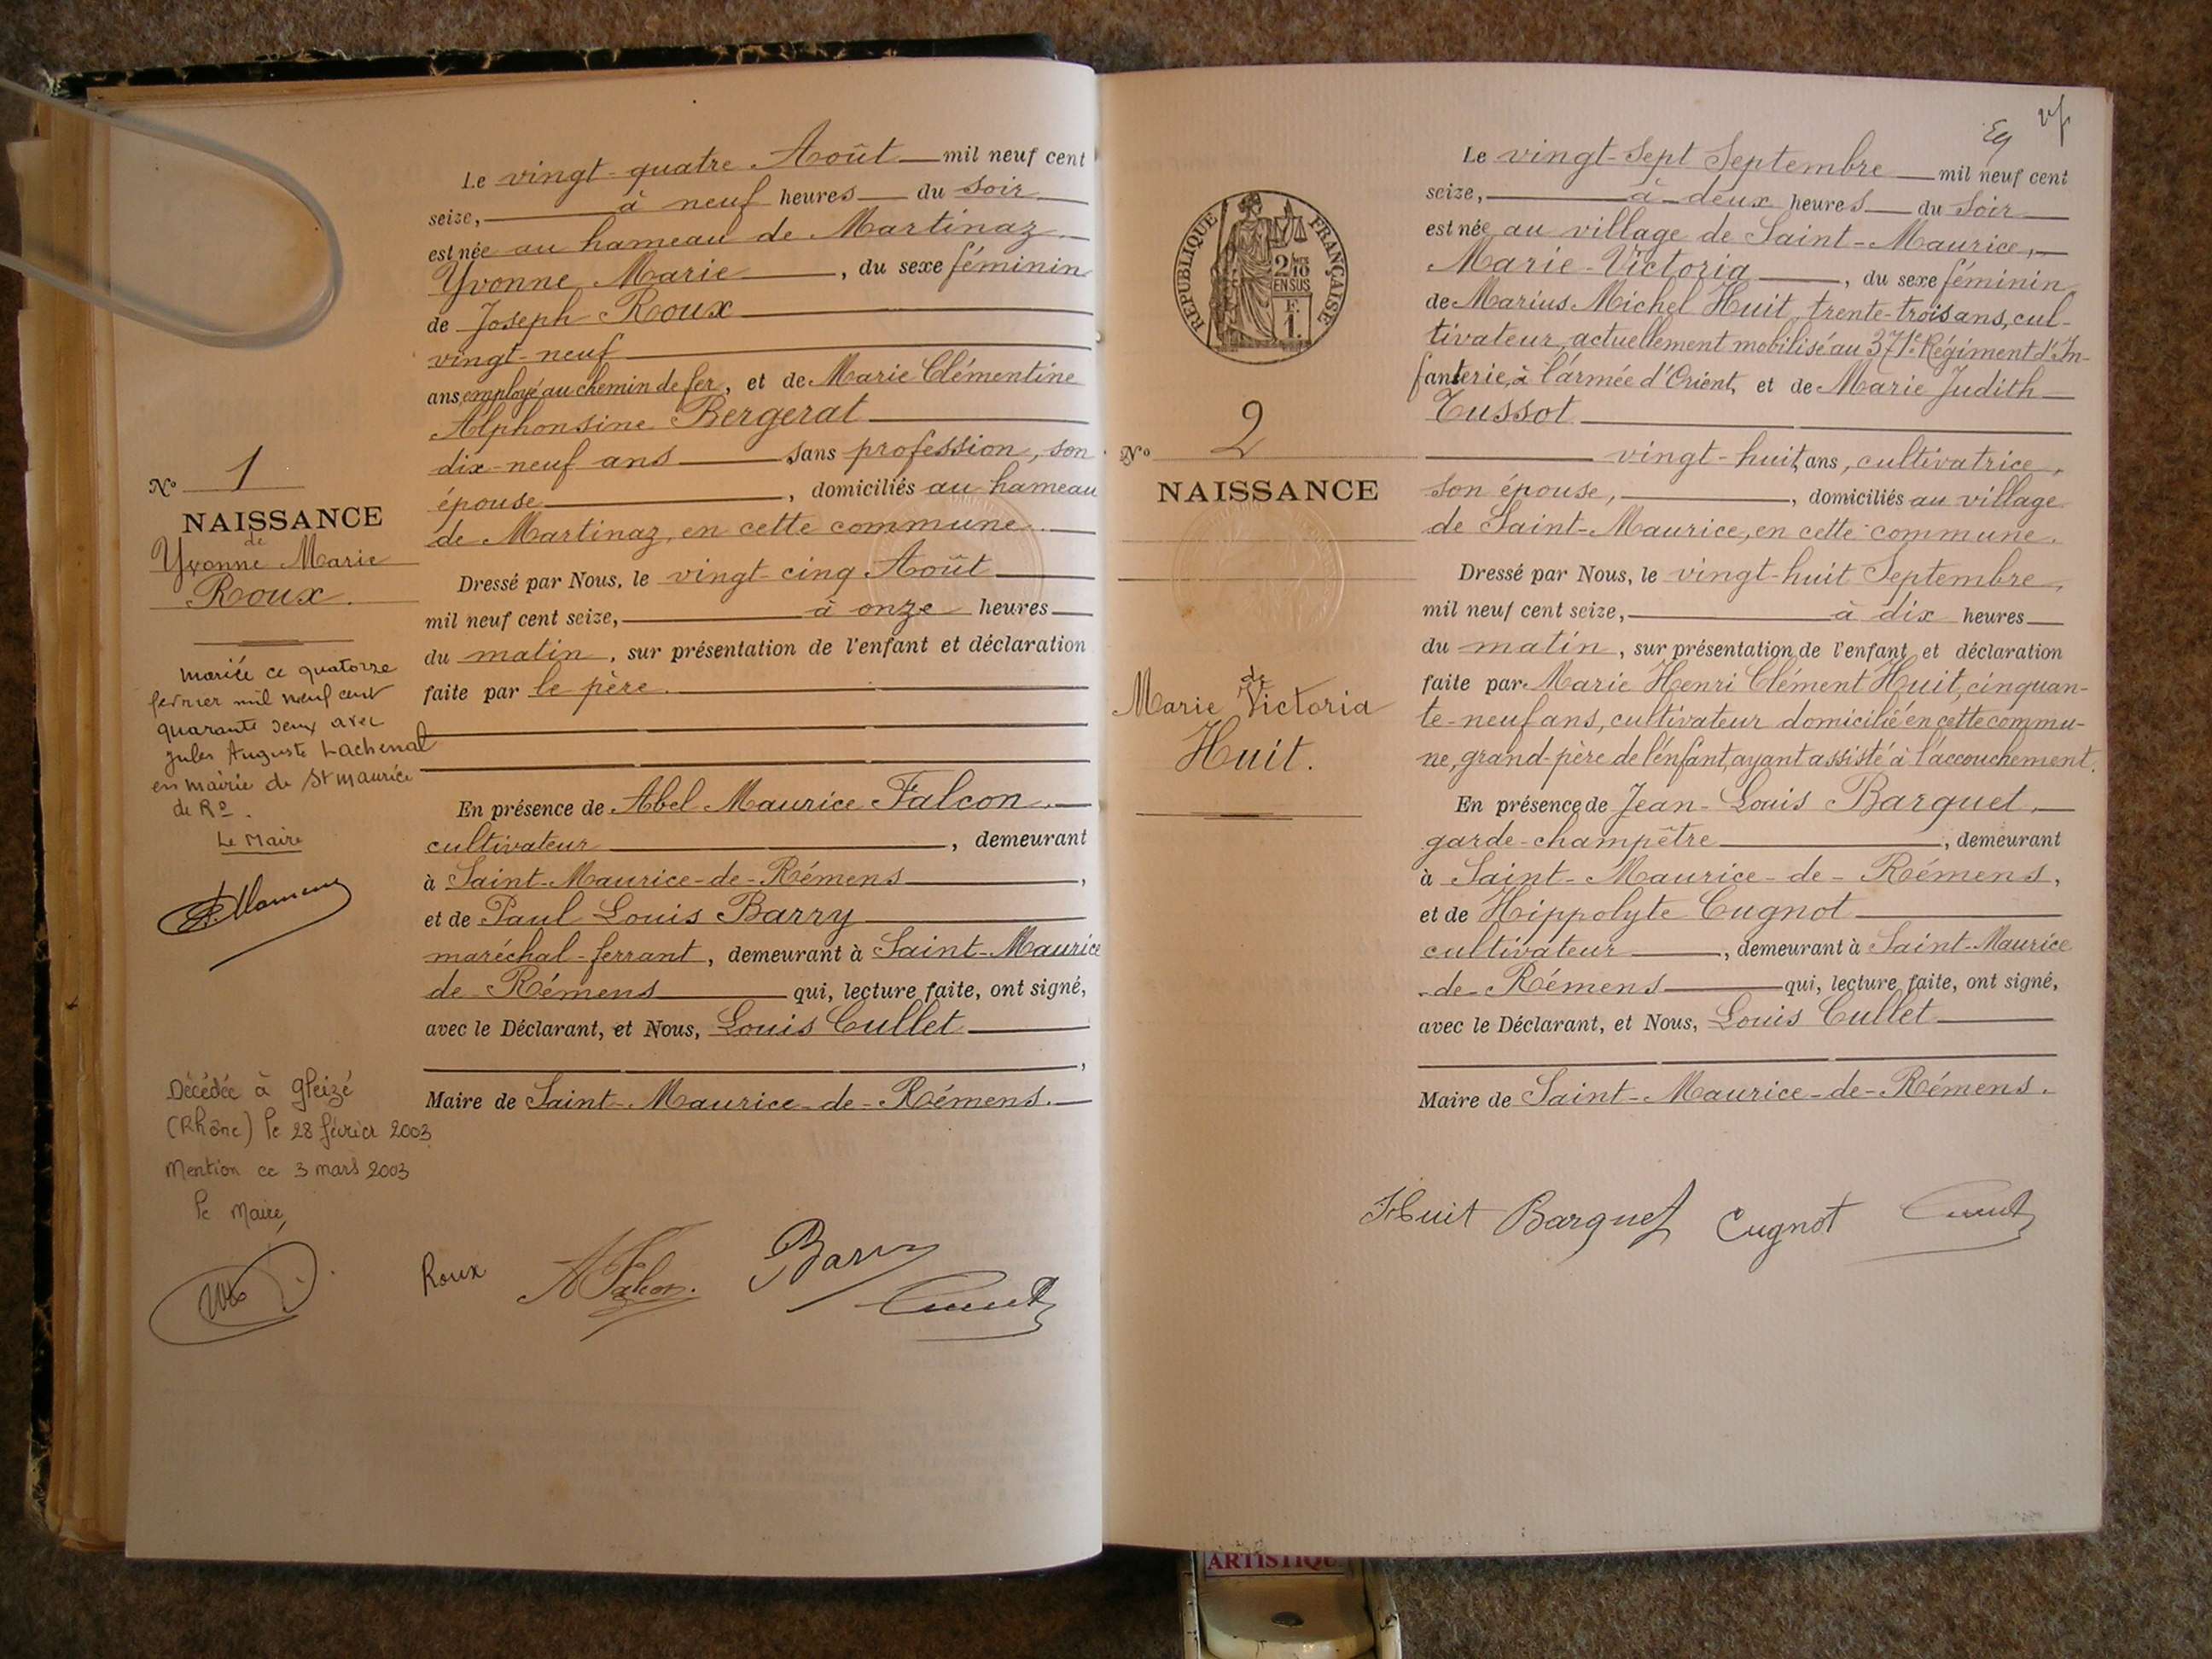 Le vingt-quatre Août mil neuf cent
seize, à neuf heures du soir
est née au hameau de Martinaz
Yvonne Marie, du sexe féminin
de Joseph Roux
vingt-neuf
ans, employé au chemin de fer, et de Marie Clémentine
Alphonsine Bergerat
dix-neuf ans sans profession, son
épouse, domiciliés au hameau
de Martinaz, en cette commune.
Dressé par Nous, le vingt-cinq Août
mil neuf cent seize, à onze heures
du matin, sur présentation de l'enfant et déclaration
faite par le père.
En présence de Abel Maurice Falcon
cultivateur, demeurant
à Saint-Maurice-de-Rémens,
et de Paul Louis Barry
maréchal-ferrant, demeurant à Saint-Maurice
de-Rémens qui, lecture faite, ont signé,
avec le Déclarant, et Nous, Louis Cullet
,
Maire de Saint-Maurice-de-Rémens.
N° 1
NAISSANCE
de
Yvonne Marie
Roux.
mariée ce quatorze
fevrier mil neuf cent
quarante deux avec
Jules Auguste Lachenal
en mairie de St maurice
de Rs.
Le Maire
Décédée à Gleizé
(Rhône) le 28 février 2003
Mention ce 3 mars 2003
le Maire,
Roux A Falcon. Barry
Eg vf
RÉPUBLIQUE FRANÇAISE
2/10
EN SUS
F.
1.
N° 2
NAISSANCE
de
Marie Victoria
Huit.
Le vingt-sept Septembre mil neuf cent
seize, à deux heures du soir
est née au village de Saint-Maurice,
Marie-Victoria, du sexe féminin
de Marius Michel Huit, trente-trois ans, cul-
tivateur, actuellement mobilisé au 371e Régiment d'In-
fanterie, à l'armée d'Orient, et de Marie Judith
Tussot
vingt-huit ans, cultivatrice,
son épouse, domiciliés au village
de Saint-Maurice, en cette commune.
Dressé par Nous, le vingt-huit Septembre,
mil neuf cent seize, à dix heures
du matin, sur présentation de l'enfant et déclaration
faite par Marie Henri Clément Huit, cinquan-
te-neuf ans, cultivateur domicilié en cette commu-
ne, grand-père de l'enfant, ayant assisté à l'accouchement.
En présence de Jean-Louis Barquet,
garde-champêtre, demeurant
à Saint-Maurice-de-Rémens,
et de Hippolyte Cugnot
cultivateur, demeurant à Saint-Maurice
-de-Rémens qui, lecture faite, ont signé,
avec le Déclarant, et Nous, Louis Cullet
Maire de Saint-Maurice-de-Rémens.
Huit Barquet Cugnot
ARTISTIQU